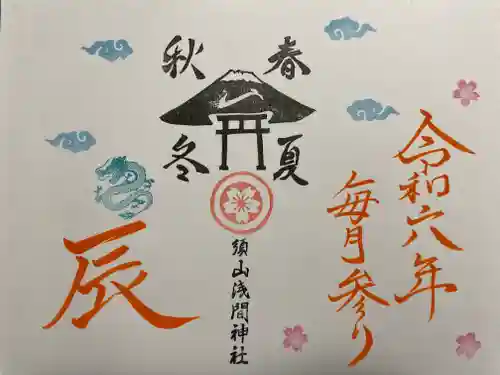 令和六年
毎月参り
春
夏
秋
冬
須山浅間神社
辰